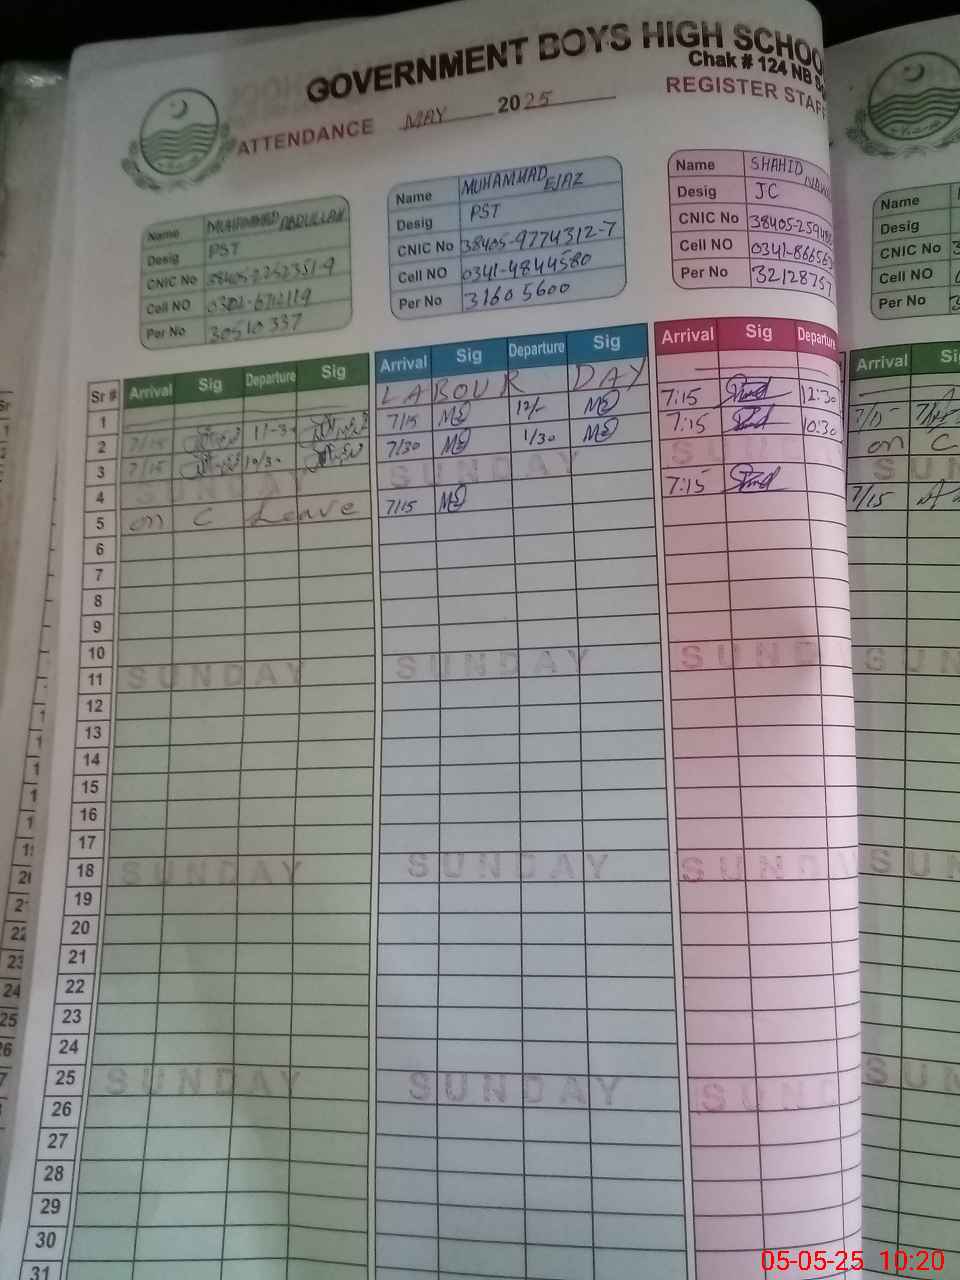 GOVERNMENT BOYS HIGH SCHOO
Chak # 124 NB S
ATTENDANCE MAY 2025 REGISTER STAFF
Name MUHAMMAD ABDULLAH
Desig PST
CNIC No
Cell NO
Per No 30510337
Name MUHAMMAD EJAZ
Desig PST
CNIC No 38405-9774312-7
Cell NO 0341-4844580
Per No 31605600
Name SHAHID
Desig JC
CNIC No 38405-2594
Cell NO 0341-86656
Per No 32128757
Name
Desig
CNIC No
Cell NO
Per No
Sr # Arrival Sig Departure Sig Arrival Sig Departure Sig Arrival Sig Departure Arrival
1 LABOUR DAY
2 7/15 11-30 7/15 12/- 7:15 12:30 7/15
3 7/15 10/30 7/30 1/30 7:15 10:30 on C
4 SUNDAY SUNDAY SUN SUN
5 on C Leave 7/15 7:15 7/15
6
7
8
9
10
11 SUNDAY SUNDAY SUND SUN
12
13
14
15
16
17
18 SUNDAY SUNDAY SUNDA SUN
19
20
21
22
23
24
25 SUNDAY SUNDAY SUND SUN
26
27
28
29
30
31
05-05-25 10:20